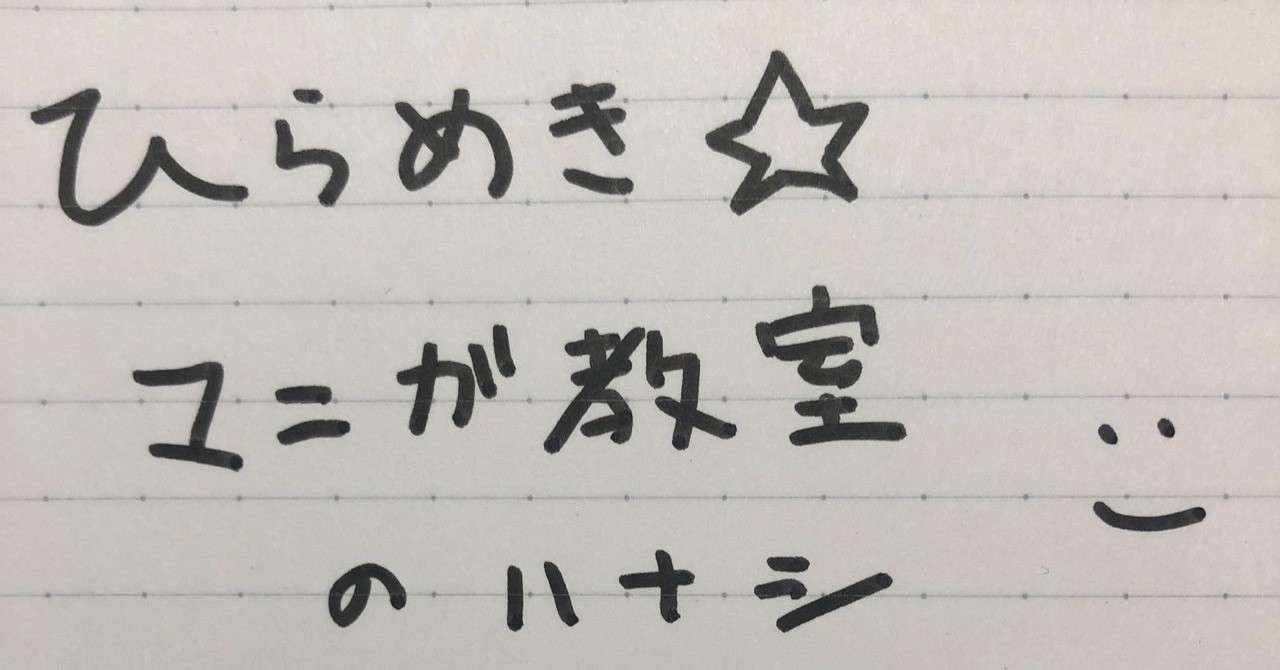 ひらめき☆
ユニが教室
のハナシ